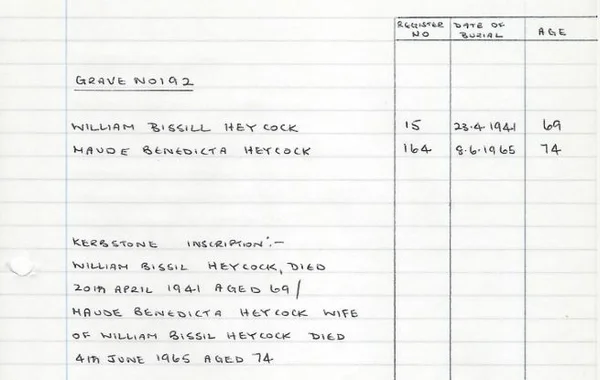 REGISTER NO DATE OF BURIAL AGE
GRAVE NO 192
WILLIAM BISSILL HEYCOCK 15 23.4.1941 69
MAUDE BENEDICTA HEYCOCK 164 8.6.1965 74
KERBSTONE INSCRIPTION:-
WILLIAM BISSIL HEYCOCK, DIED
20TH APRIL 1941 AGED 69/
MAUDE BENEDICTA HEYCOCK WIFE
OF WILLIAM BISSIL HEYCOCK DIED
4TH JUNE 1965 AGED 74